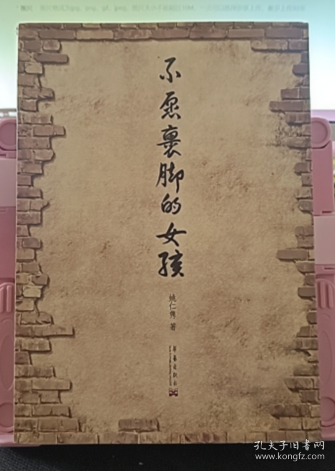 不愿裹脚的女孩
姚仁隽 著
华艺出版社
孔夫子旧书网
www.kongfz.com